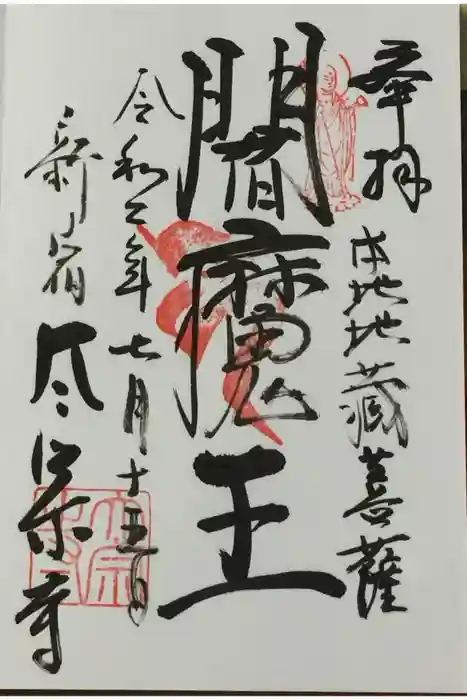 奉拝
本地地蔵菩薩
閻魔王
令和二年七月十五日
新宿太宗寺